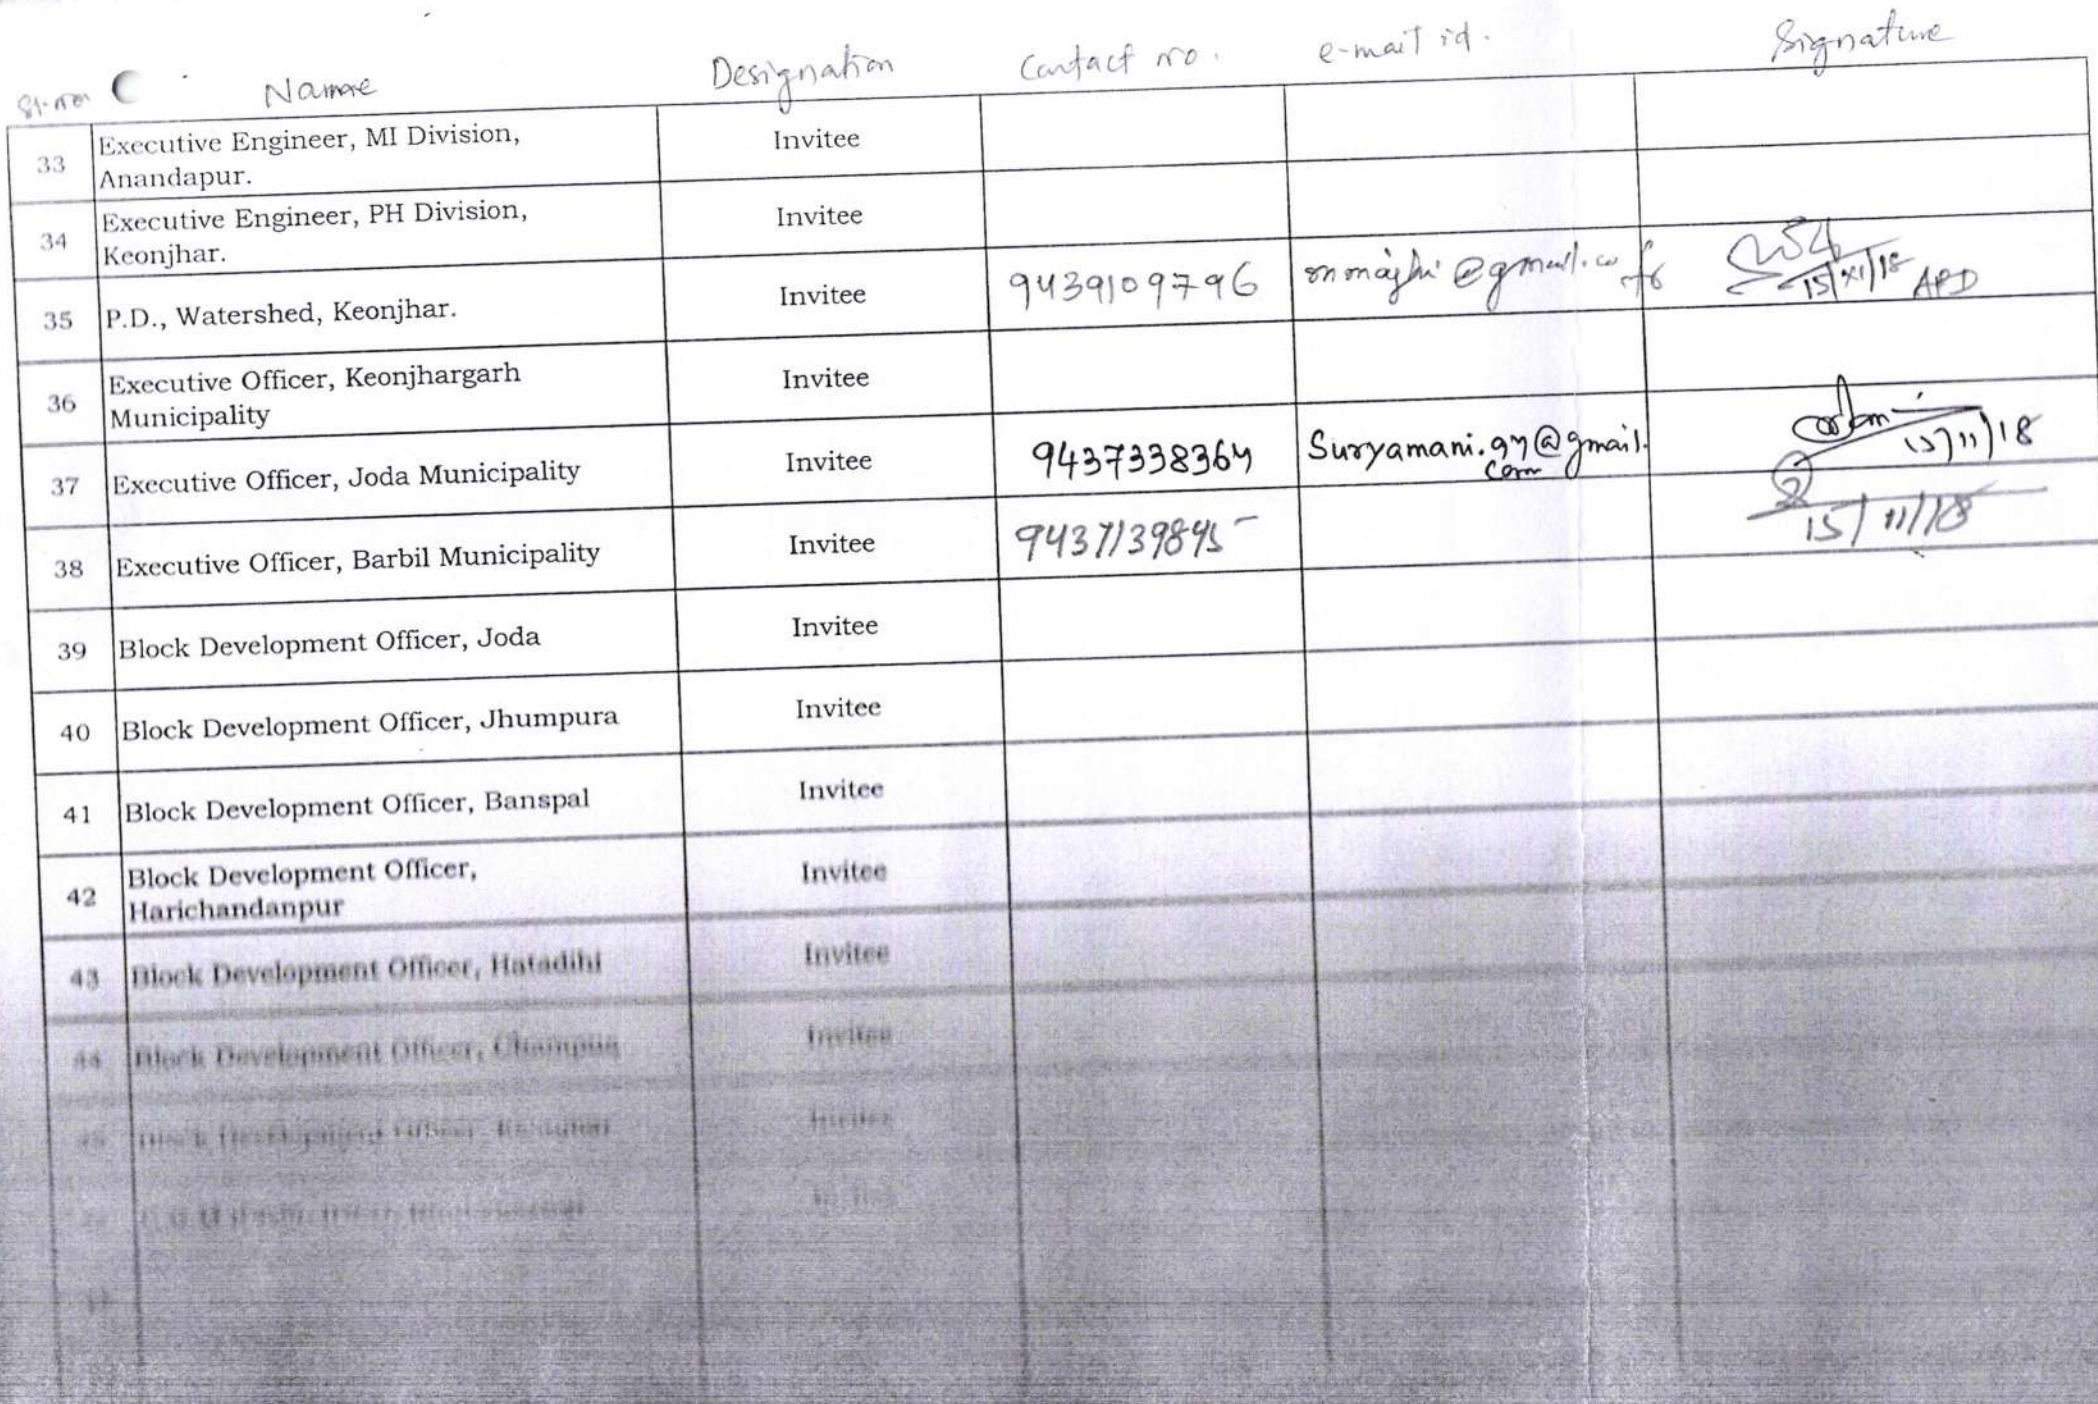 Sl. no. Name Designation Contact no. e-mail id. Signature
33 Executive Engineer, MI Division, Anandapur. Invitee
34 Executive Engineer, PH Division, Keonjhar. Invitee
35 P.D., Watershed, Keonjhar. Invitee 9439109796 15/XI/18 APD
36 Executive Officer, Keonjhargarh Municipality Invitee
37 Executive Officer, Joda Municipality Invitee 9437338364 Suryamani.97@gmail.com 15/11/18
38 Executive Officer, Barbil Municipality Invitee 9437139845 15/11/18
39 Block Development Officer, Joda Invitee
40 Block Development Officer, Jhumpura Invitee
41 Block Development Officer, Banspal Invitee
42 Block Development Officer, Harichandanpur Invitee
43 Block Development Officer, Hatadihi Invitee
44 Block Development Officer, Champua Invitee
45 Block Development Officer, Invitee